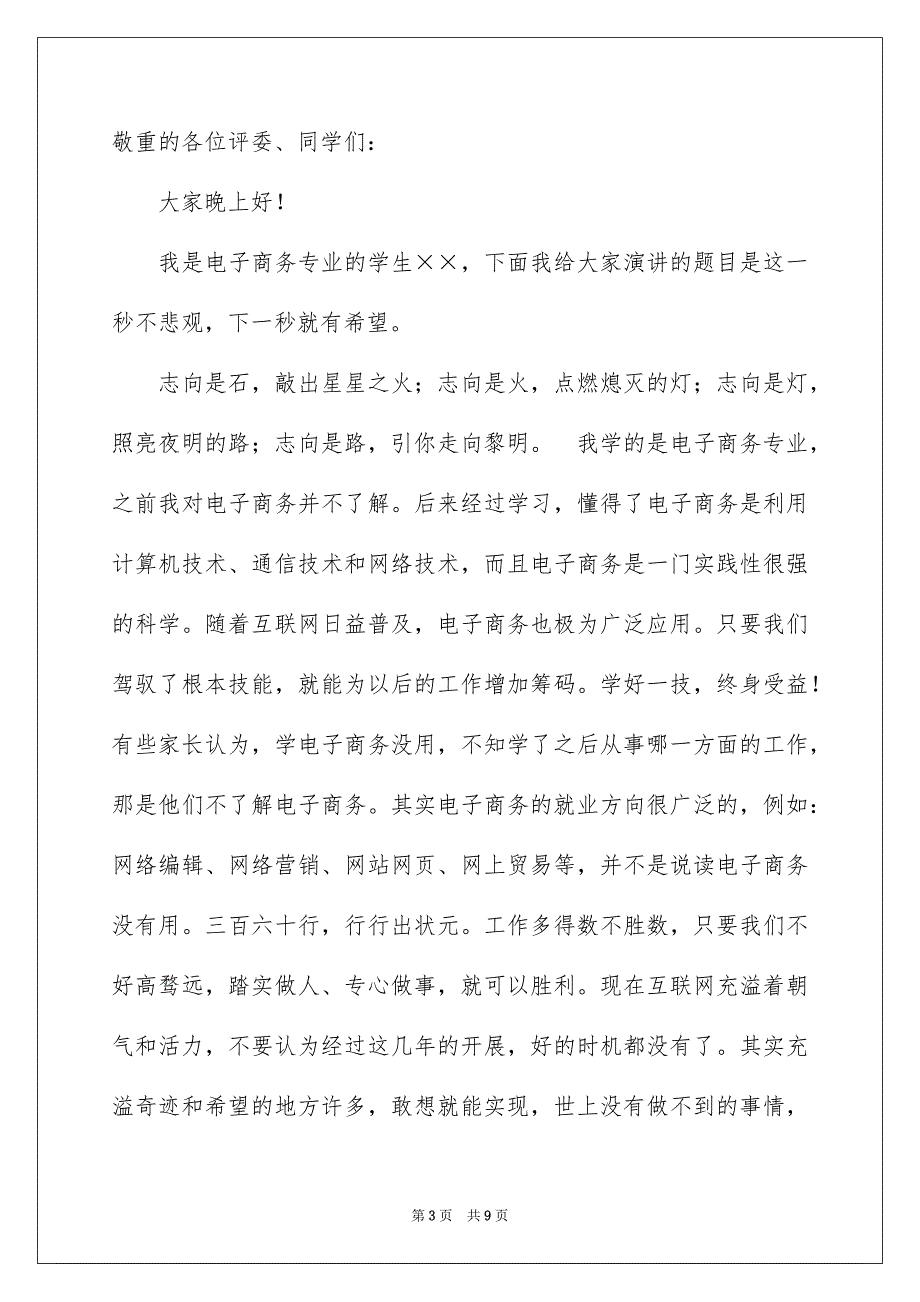 敬重的各位评委、同学们：
大家晚上好！
我是电子商务专业的学生××，下面我给大家演讲的题目是这一
秒不悲观，下一秒就有希望。
志向是石，敲出星星之火；志向是火，点燃熄灭的灯；志向是灯，
照亮夜明的路；志向是路，引你走向黎明。　我学的是电子商务专业，
之前我对电子商务并不了解。后来经过学习，懂得了电子商务是利用
计算机技术、通信技术和网络技术，而且电子商务是一门实践性很强
的科学。随着互联网日益普及，电子商务也极为广泛应用。只要我们
驾驭了根本技能，就能为以后的工作增加筹码。学好一技，终身受益！
有些家长认为，学电子商务没用，不知学了之后从事哪一方面的工作，
那是他们不了解电子商务。其实电子商务的就业方向很广泛的，例如：
网络编辑、网络营销、网站网页、网上贸易等，并不是说读电子商务
没有用。三百六十行，行行出状元。工作多得数不胜数，只要我们不
好高骛远，踏实做人、专心做事，就可以胜利。现在互联网充溢着朝
气和活力，不要认为经过这几年的开展，好的时机都没有了。其实充
溢奇迹和希望的地方许多，敢想就能实现，世上没有做不到的事情，
第 3 页　共 9 页